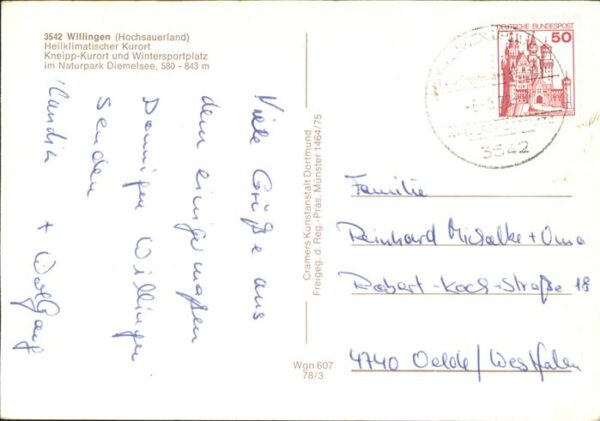 3542 Willingen (Hochsauerland)
Heilklimatischer Kurort
Kneipp-Kurort und Wintersportplatz
im Naturpark Diemelsee, 580 - 843 m
Viele Grüße aus
dem einigermaßen
Willingen
senden
+ Wolfgang
Cramers Kunstanstalt Dortmund
Freigeg. d. Reg.-Präs. Münster 1464/75
Wgn 607
78/3
DEUTSCHE BUNDESPOST
50
3542
Familie
Reinhard Michalke + Oma
Robert-Koch-Straße 18
4740 Oelde/Westfalen